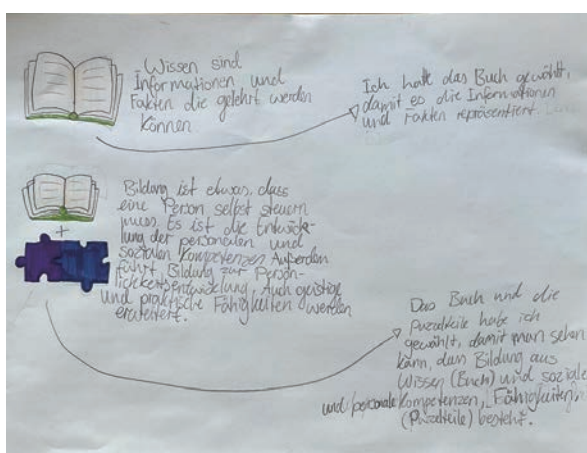 Wissen sind
Informationen und
Fakten die gelehrt werden
können.
Ich hatte das Buch gewählt,
damit es die Informationen
und Fakten repräsentiert.
Bildung ist etwas, dass
eine Person selbst steuern
muss. Es ist die Entwick-
lung der personalen und
sozialen Kompetenzen Außerdem
führt Bildung zur Persön-
lichkeitsentwicklung. Auch geistige
und praktische Fähigkeiten werden
erweitert.
+
Das Buch und die
Puzzelteile habe ich
gewählt, damit man sehen
kann, dan Bildung aus
Wissen (Buch) und soziale
und personale Kompetenzen, Fähigkeiten,
(Puzzelteile) besteht.